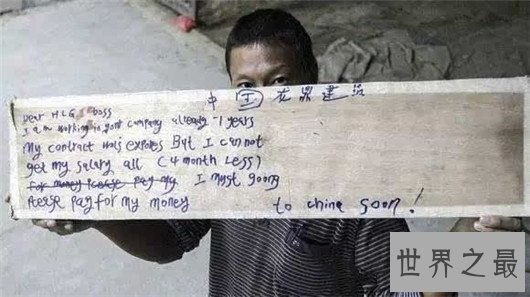 中国 建
Dear HLG boss
I am working in yout company already -1 years
My contract was expores But I can not
get my salary all (4 month less)
for money pay my I must goong
pay for my money to china soon!
世界之最